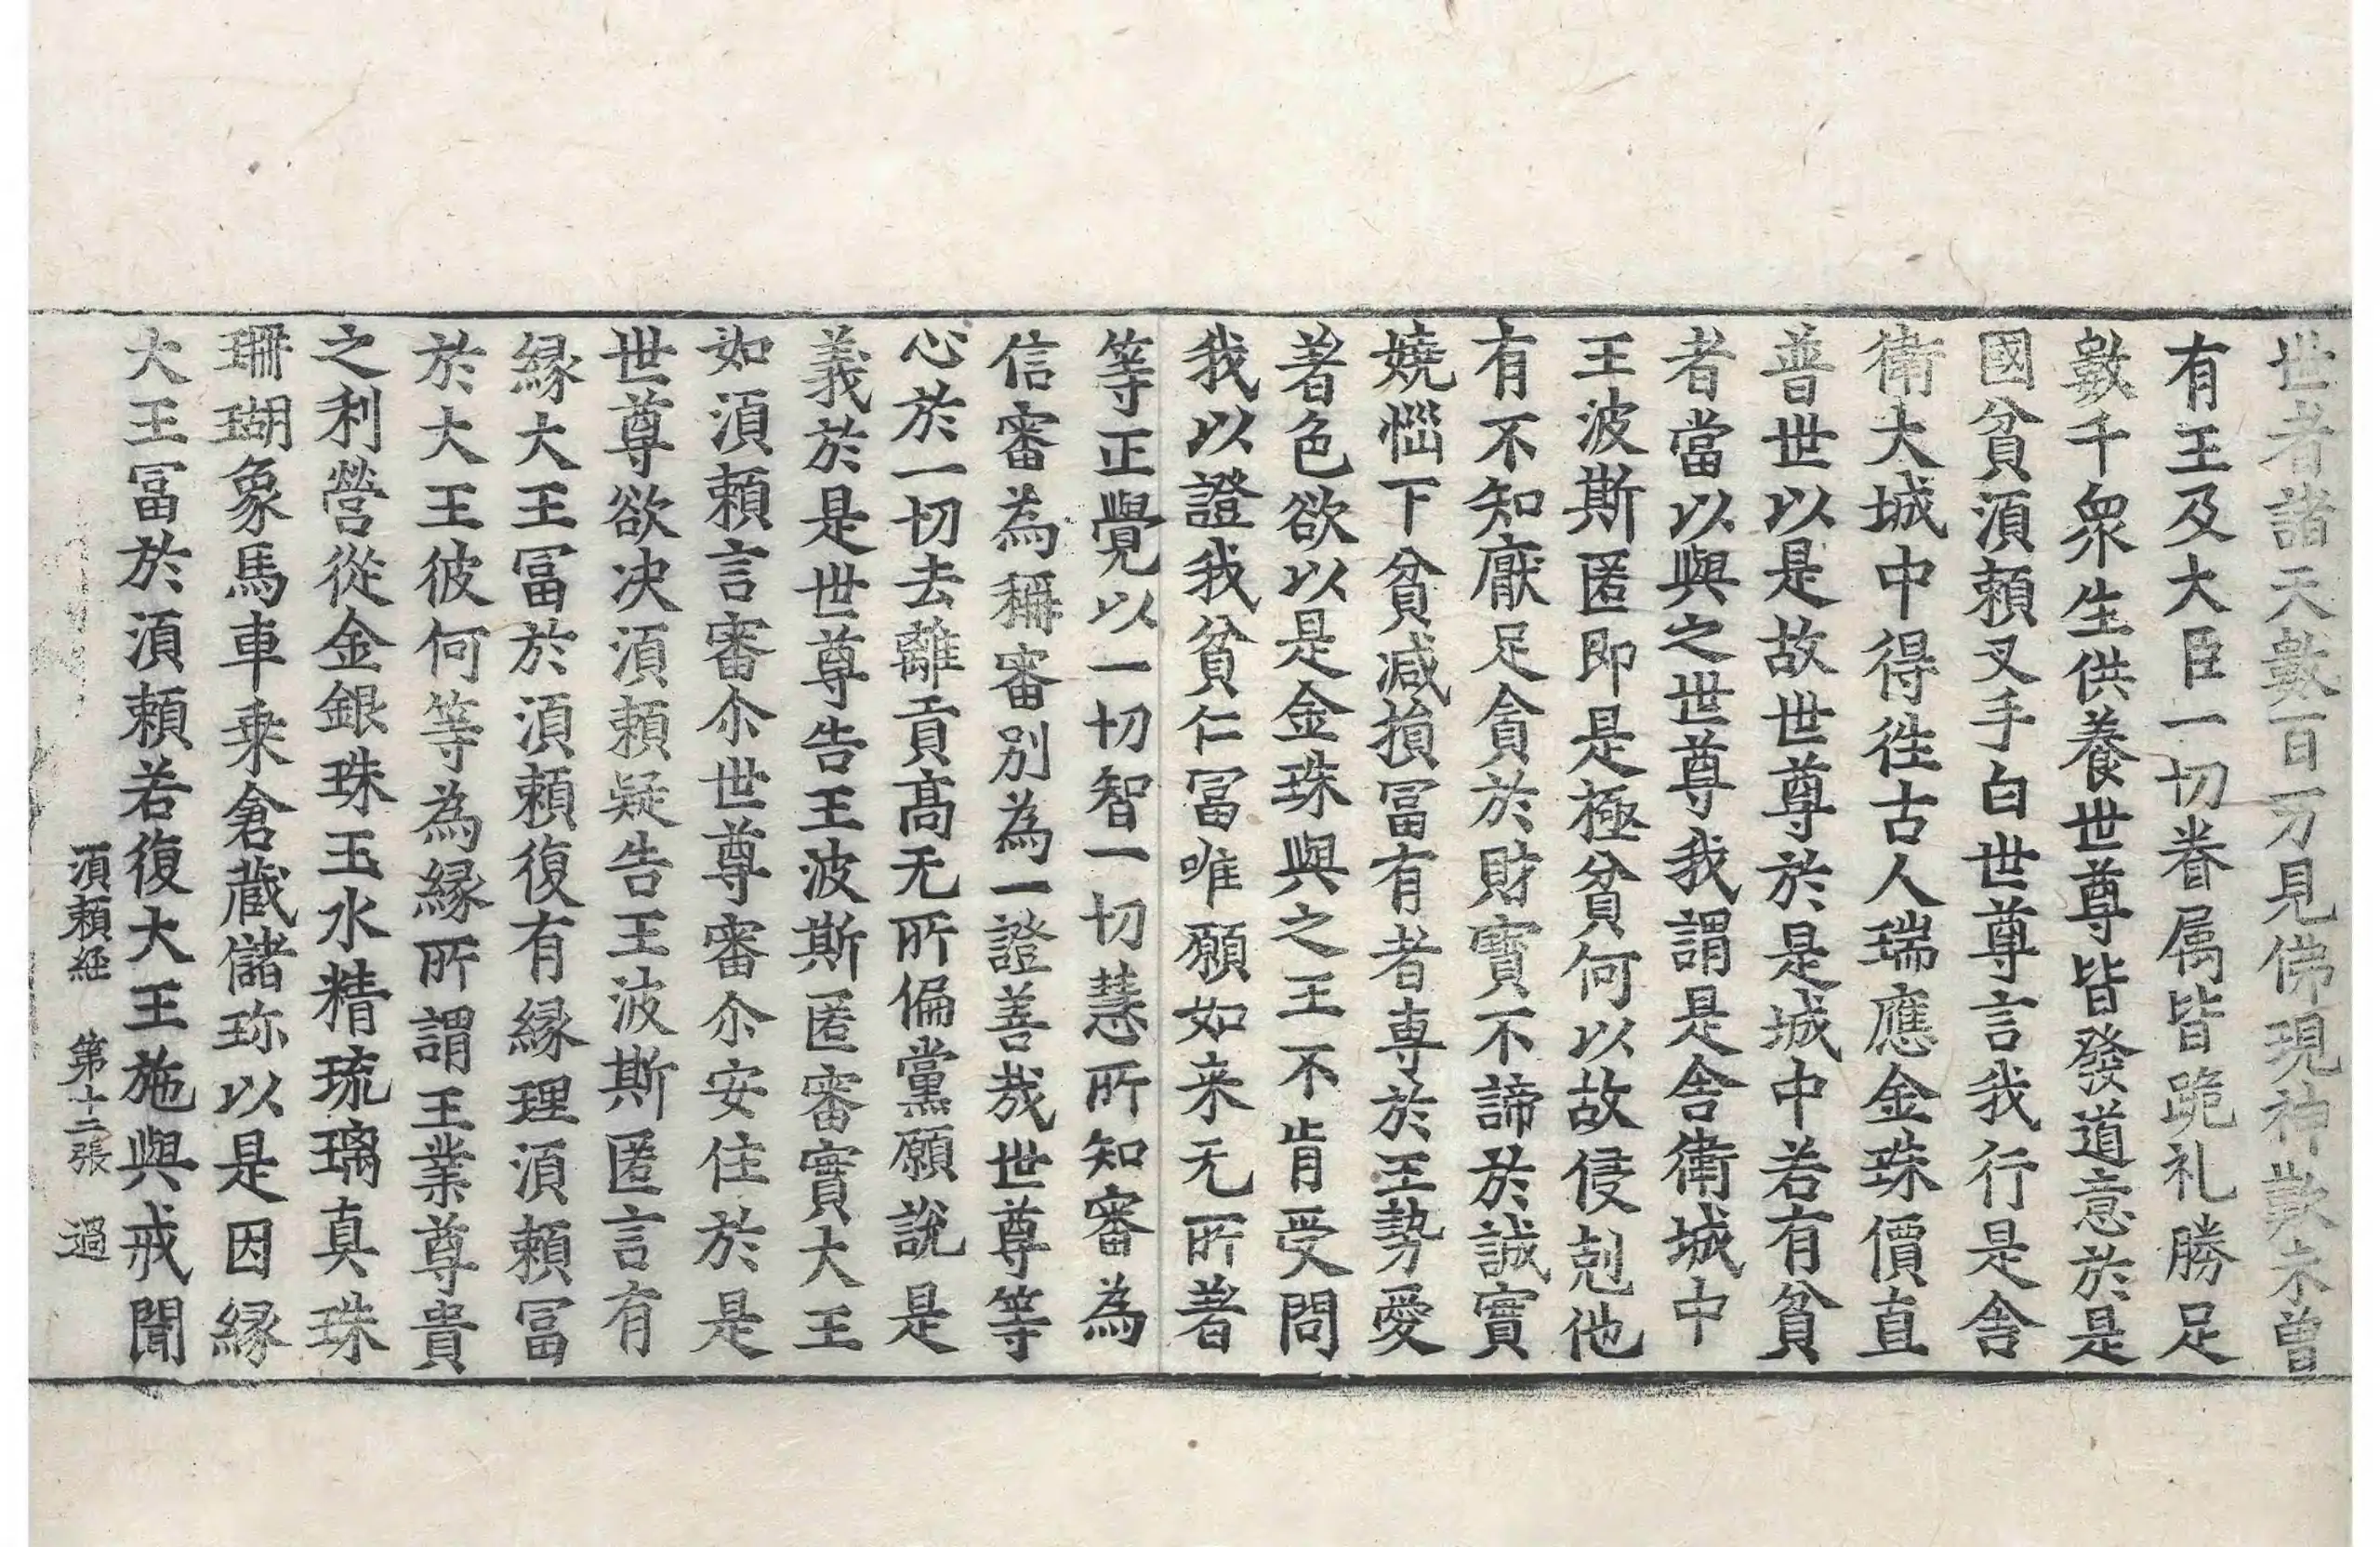 世者諸天數百万見佛現神歎未曾
有王及大臣一切眷属皆跪礼勝足
數千衆生供養世尊皆發道意於是
國貧湏頼叉手白世尊言我行是舎
衛大城中得徃古人瑞應金珠價直
普世以是故世尊於是城中若有貧
者當以與之世尊我謂是舎衛城中
王波斯匿即是極貧何以故侵剋他
有不知厭足貪於財寳不諦於誠實
嬈惱下貧减損冨有者専於王勢愛
著色欲以是金珠與之王不肯受問
我以證我貧仁冨唯願如来无所著
等正覺以一切智一切慧所知審為
信審為稱審別為一證善哉世尊等
心於一切去離貢髙无所偏黨願說是
義於是世尊告王波斯匿審實大王
如湏頼言審尒世尊審尒安住於是
世尊欲决湏頼疑告王波斯匿言有
縁大王冨於湏頼復有縁理湏頼冨
於大王彼何等為縁所謂王業尊貴
之利營從金銀珠玉水精琉璃真珠
珊瑚象馬車乗倉藏儲珎以是因縁
大王冨於湏頼若復大王施與戒聞
湏頼經 第十二張 過